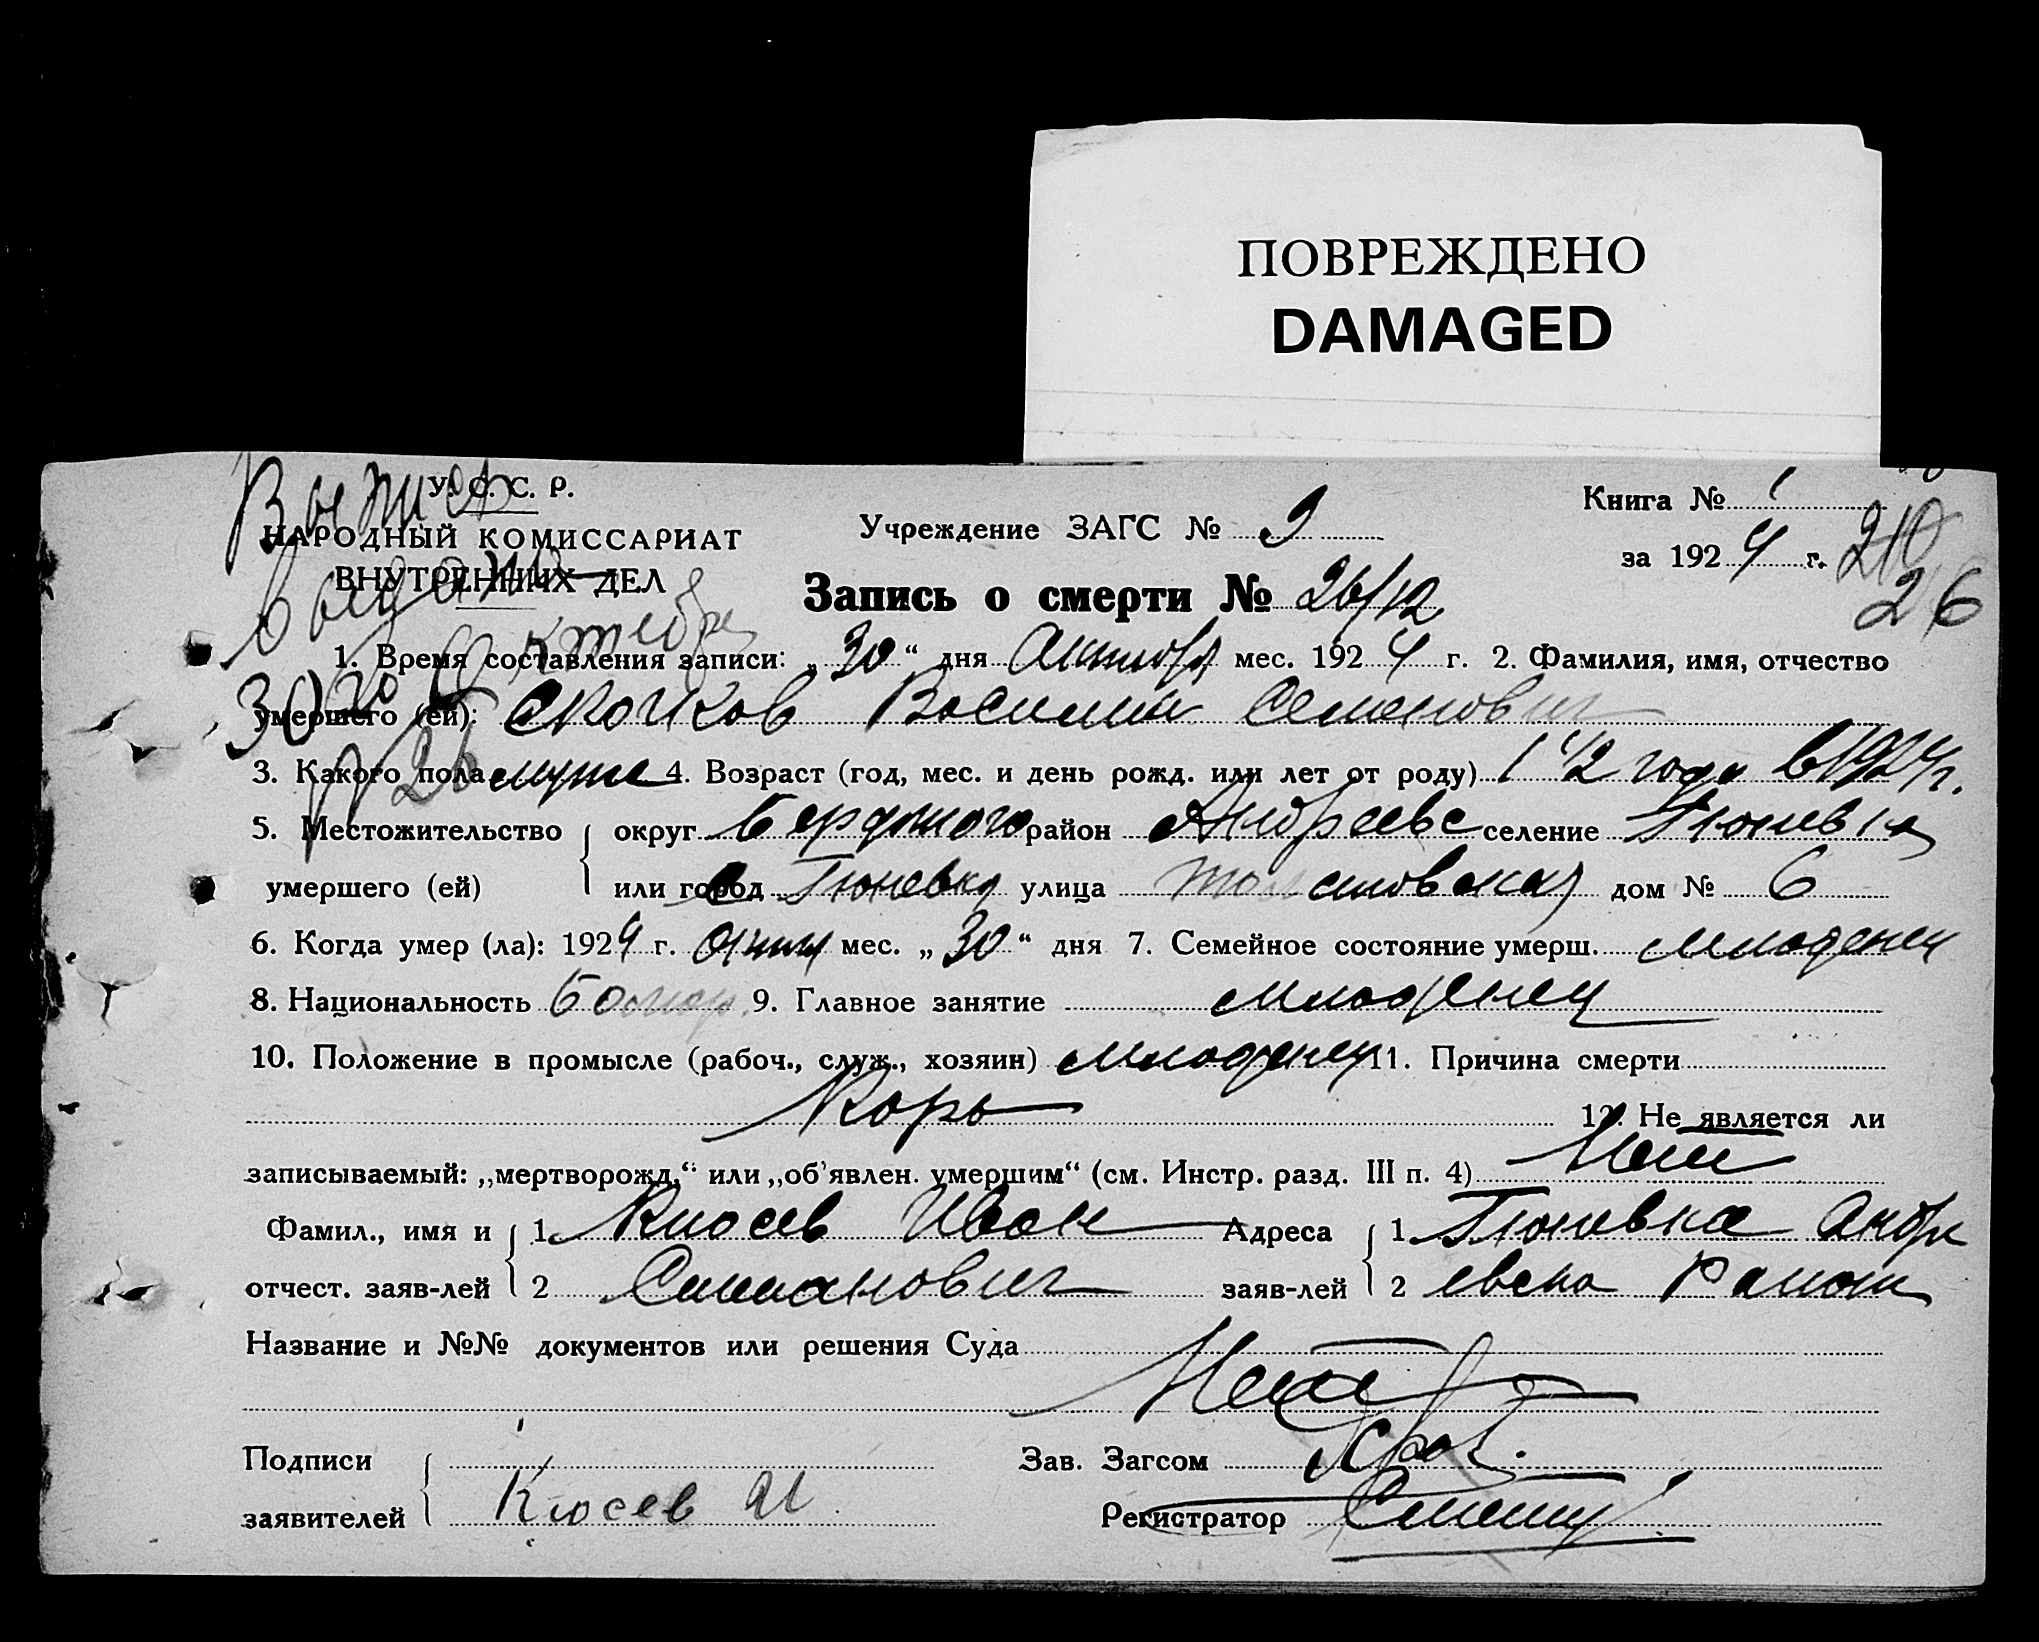 ПОВРЕЖДЕНО
DAMAGED
У. С. С. Р.
НАРОДНЫЙ КОМИССАРИАТ
ВНУТРЕННИХ ДЕЛ
Выпись
выдана
30го Октебре
26
Учреждение ЗАГС № 9
Книга № 1
за 1924 г.
210
26
Запись о смерти № 26/12
1. Время составления записи: „30“ дня Октобр мес. 1924 г. 2. Фамилия, имя, отчество
умершего (ей): Скочков Восилий Семенович
3. Какого пола муже 4. Возраст (год, мес. и день рожд. или лет от роду) 1 1/2 года в 1924 г.
5. Местожительство округ Бердского район Андреевс селение Тюневка
умершего (ей) или город с Тюневка улица дом № 6
6. Когда умер (ла): 1924 г. мес. „30“ дня 7. Семейное состояние умерш. младенец
8. Национальность Болгар. 9. Главное занятие младенец
10. Положение в промысле (рабоч., служ., хозяин) младенец 11. Причина смерти
Корь 12. Не является ли
записываемый: „мертворожд.“ или „об'явлен. умершим“ (см. Инстр. разд. III п. 4) Нет
Фамил., имя и 1. Кюсев Иван Адреса 1. Тюневка Андре
отчест. заяв-лей 2 Симанович заяв-лей 2 евска Район
Название и №№ документов или решения Суда
Нет
Подписи Зав. Загсом
заявителей Кюсев И Регистратор